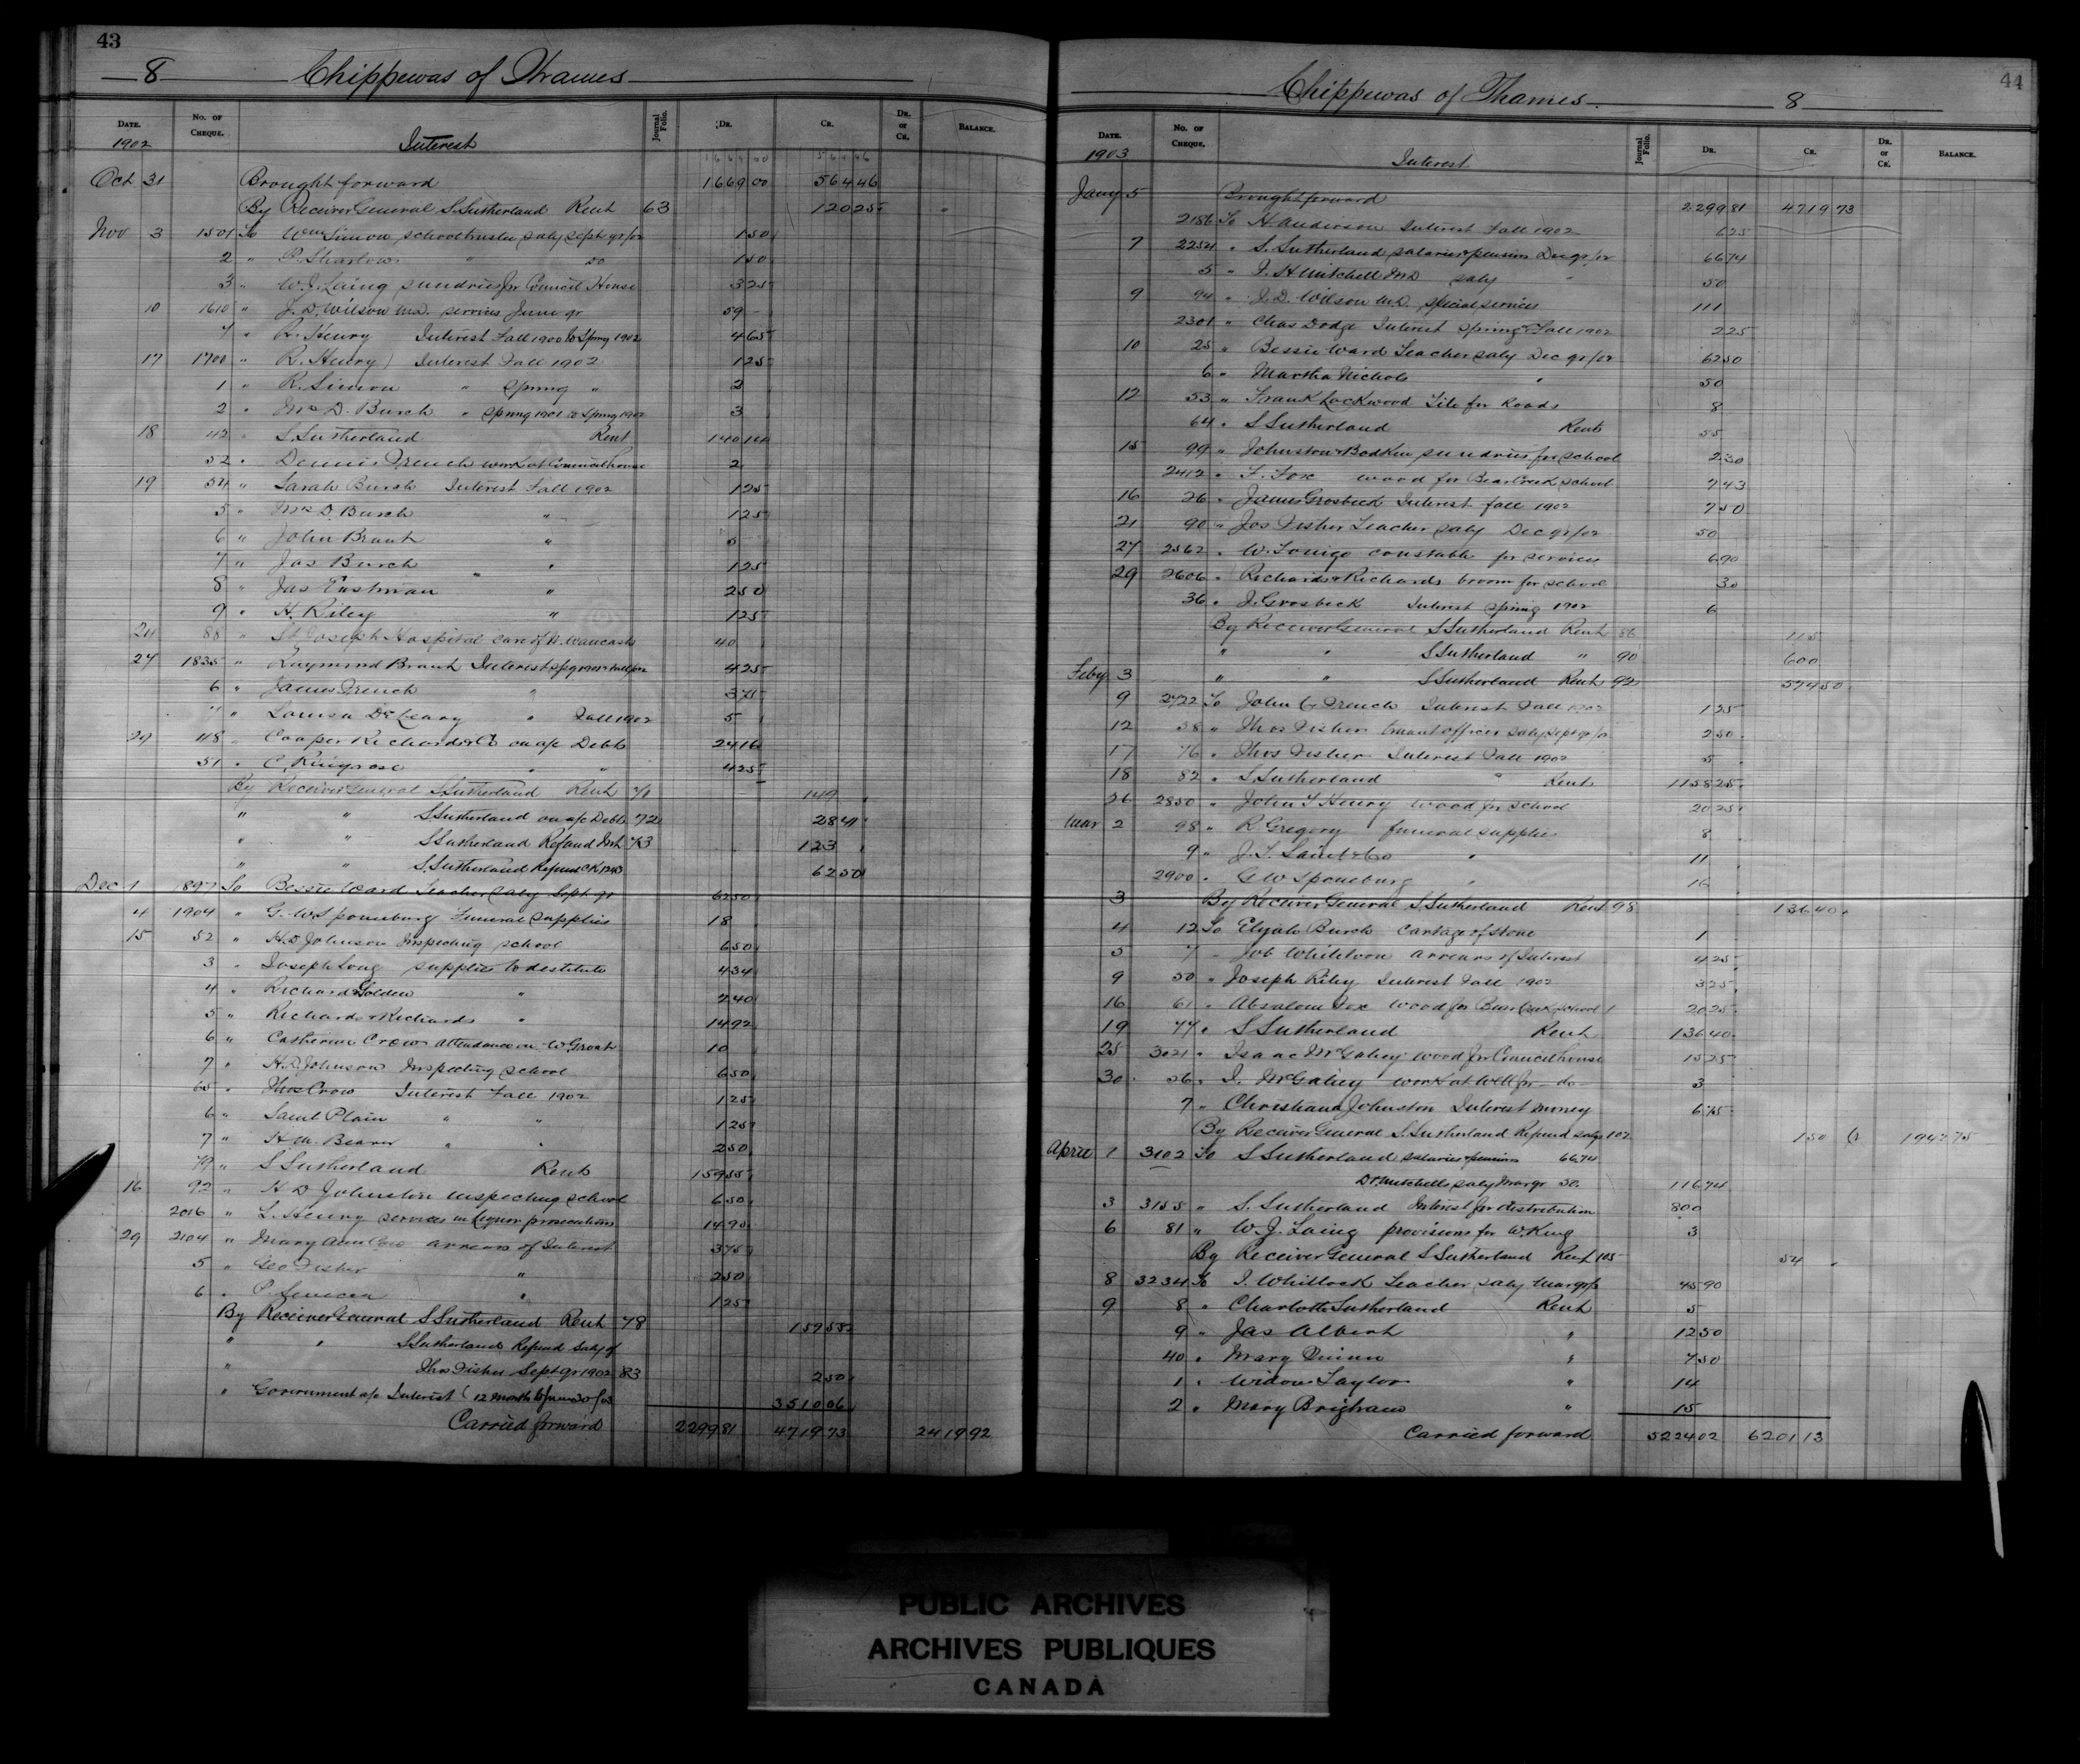 43
8 Chippewas of Thames
DATE. No. OF CHEQUE. Journal Folio. DR. CR. DR. or CR. BALANCE.
1902 Interest
Oct 31 Brought forward 1669 00 564 46
By Receiver General S. Sutherland Rent 63 120 25
Nov 3 1501 To Wm Simon school trustee saly sept qr/02 1 50
2 " " do 1 50
3 " W. J. Laing sundries for Council House 3 25
10 1610 " J. D. Wilson M.D. services June qr 59
7 " R. Henry Interest Fall 1900 to Spring 1902 4 65
17 1700 " R. Henry Interest Fall 1902 1 25
1 " R. Simon " Spring " 2
2 " Mrs D. Burch " Spring 1901 to Spring 1902 3
18 42 " S. Sutherland Rent 140 14
52 " Dennis French work at Council house 2
19 54 " Sarah Burch Interest Fall 1902 1 25
5 " Mrs D. Burch " 1 25
6 " John Brant " 5
7 " Jas Burch " " 1 25
8 " Jas Eastman " " 2 50
9 " H. Riley " 1 25
24 88 " St Joseph Hospital care of W. Waucash 40
27 1835 " Raymond Brant Interest 4 25
6 " James French " 3 75
7 " Louisa DeLeary " Fall 1902 5
29 48 " Cooper Richards & Co on a/c Debts 24 16
51 " C. Ringrose " " 4 25
By Receiver General S. Sutherland Rent 71 149
" " S. Sutherland on a/c Debts 72 28 41
" " S. Sutherland Refund Int 73 123
" " S. Sutherland Refund CK 1243 62 50
Dec 1 1897 To Bessie Ward Teacher saly Sept qr 62 50
4 1904 " G. W. Sponenburg Funeral supplies 18
15 52 " H. D. Johnson Inspecting school 6 50
3 " Joseph Long supplies to destitute 4 34
4 " Richard Golden " 2 40
5 " Richards & Richards " 14 92
6 " Catherine Crow attendance on W. Grosh 10
7 " H. D. Johnson Inspecting school 6 50
65 " Thos Crow Interest Fall 1902 1 25
6 " Saml Plain " " 1 25
7 " H. M. Beaver " " 2 50
79 " S Sutherland Rents 159 55
16 92 " H D Johnston inspecting school 6 50
2016 " L. Henry services in liquor prosecutions 14 90
29 2104 " Mary Ann Coo arrears of Interest 3 75
5 " Geo Fisher " 2 50
6 " P. Seneca " 1 25
By Receiver General S Sutherland Rent 78 159 55
" " S Sutherland Refund Saly of
" Thos Fisher Sept qr 1902 83 2 50
" Government a/c Interest (12 months to June 30/03 3510 06
Carried forward 2299 81 4719 73 2419 92
44
Chippewas of Thames 8
DATE. No. OF CHEQUE. Journal Folio. DR. CR. DR. or CR. BALANCE.
1903 Interest
Jany 5 Brought forward 2299 81 4719 73
2186 To H. Anderson Interest Fall 1902 6 25
7 2254 " S. Sutherland salaries & pensions Dec qr/02 66 74
5 " F. H Mitchell MD saly " 50
9 94 " J. D. Wilson M.D. special services 111
2301 " Chas Dodge Interest Spring & Fall 1902 2 25
10 25 " Bessie Ward Teacher saly Dec qr/02 62 50
6 " Martha Nichols " 50
12 53 " Frank Lockwood Tile for Roads 8
64 " S Sutherland Rents 55
15 99 " Johnston & Bodkin sundries for school 2 30
2412 " F. Fox wood for Bear Creek school 7 43
16 26 " James Grosbeck Interest fall 1902 7 50
21 90 " Jos Fisher Teacher saly Dec qr/02 50
27 2562 " W. Tonigo constable for services 6 90
29 2606 " Richards & Richards broom for school 30
36 " J. Grosbeck Interest spring 1902 6
By Receiver General S Sutherland Rent 86 115
" " S Sutherland " 90 600
Feby 3 " " S Sutherland Rent 92 574 50
9 2722 To John G French Interest Fall 1902 1 25
12 38 " Thos Fisher truant officer saly sept qr/02 2 50
17 76 " Thos Fisher Interest Fall 1902 5
18 82 " S. Sutherland Rents 1158 25
26 2850 " John T Henry wood for school 20 25
Mar 2 98 " R Gregory funeral supplies 8
9 " " 11
2900 " G W Sponenburg " 16
3 By Receiver General S. Sutherland Rent 98 136 40
4 12 To Elijah Burch Cartage of stone 1
5 7 " Job Whiteloon arrears of Interest 4 25
9 50 " Joseph Riley Interest Fall 1902 3 25
16 61 " Absalom Fox wood for Bear Creek school 20 25
19 77 " S Sutherland Rent 136 40
25 3021 " Isaac McGahey wood for Council house 15 25
30 56 " I. McGahey work at well for - do - 3
7 " Christiana Johnston Interest money 6 75
By Receiver General S. Sutherland Refund saly 102 1 50 Cr 1942 75
April 1 3102 To S Sutherland salaries & pensions 66.74
Dr Mitchells saly Mar qr 50. 116 74
3 3155 " S. Sutherland Interest for distribution 800
6 81 " W. J. Laing provisions for W. King 3
By Receiver General S Sutherland Rent 105 54
8 3234 To I. Whitlock Teacher saly Mar qr/3 45 90
9 8 " Charlotte Sutherland Rent 5
9 " Jas Albert " 12 50
40 " Mary Quinn " 7 50
1 " Widow Taylor " 14
2 " Mary Brigham " 15
Carried forward 5224 02 6201 13
PUBLIC ARCHIVES
ARCHIVES PUBLIQUES
CANADA